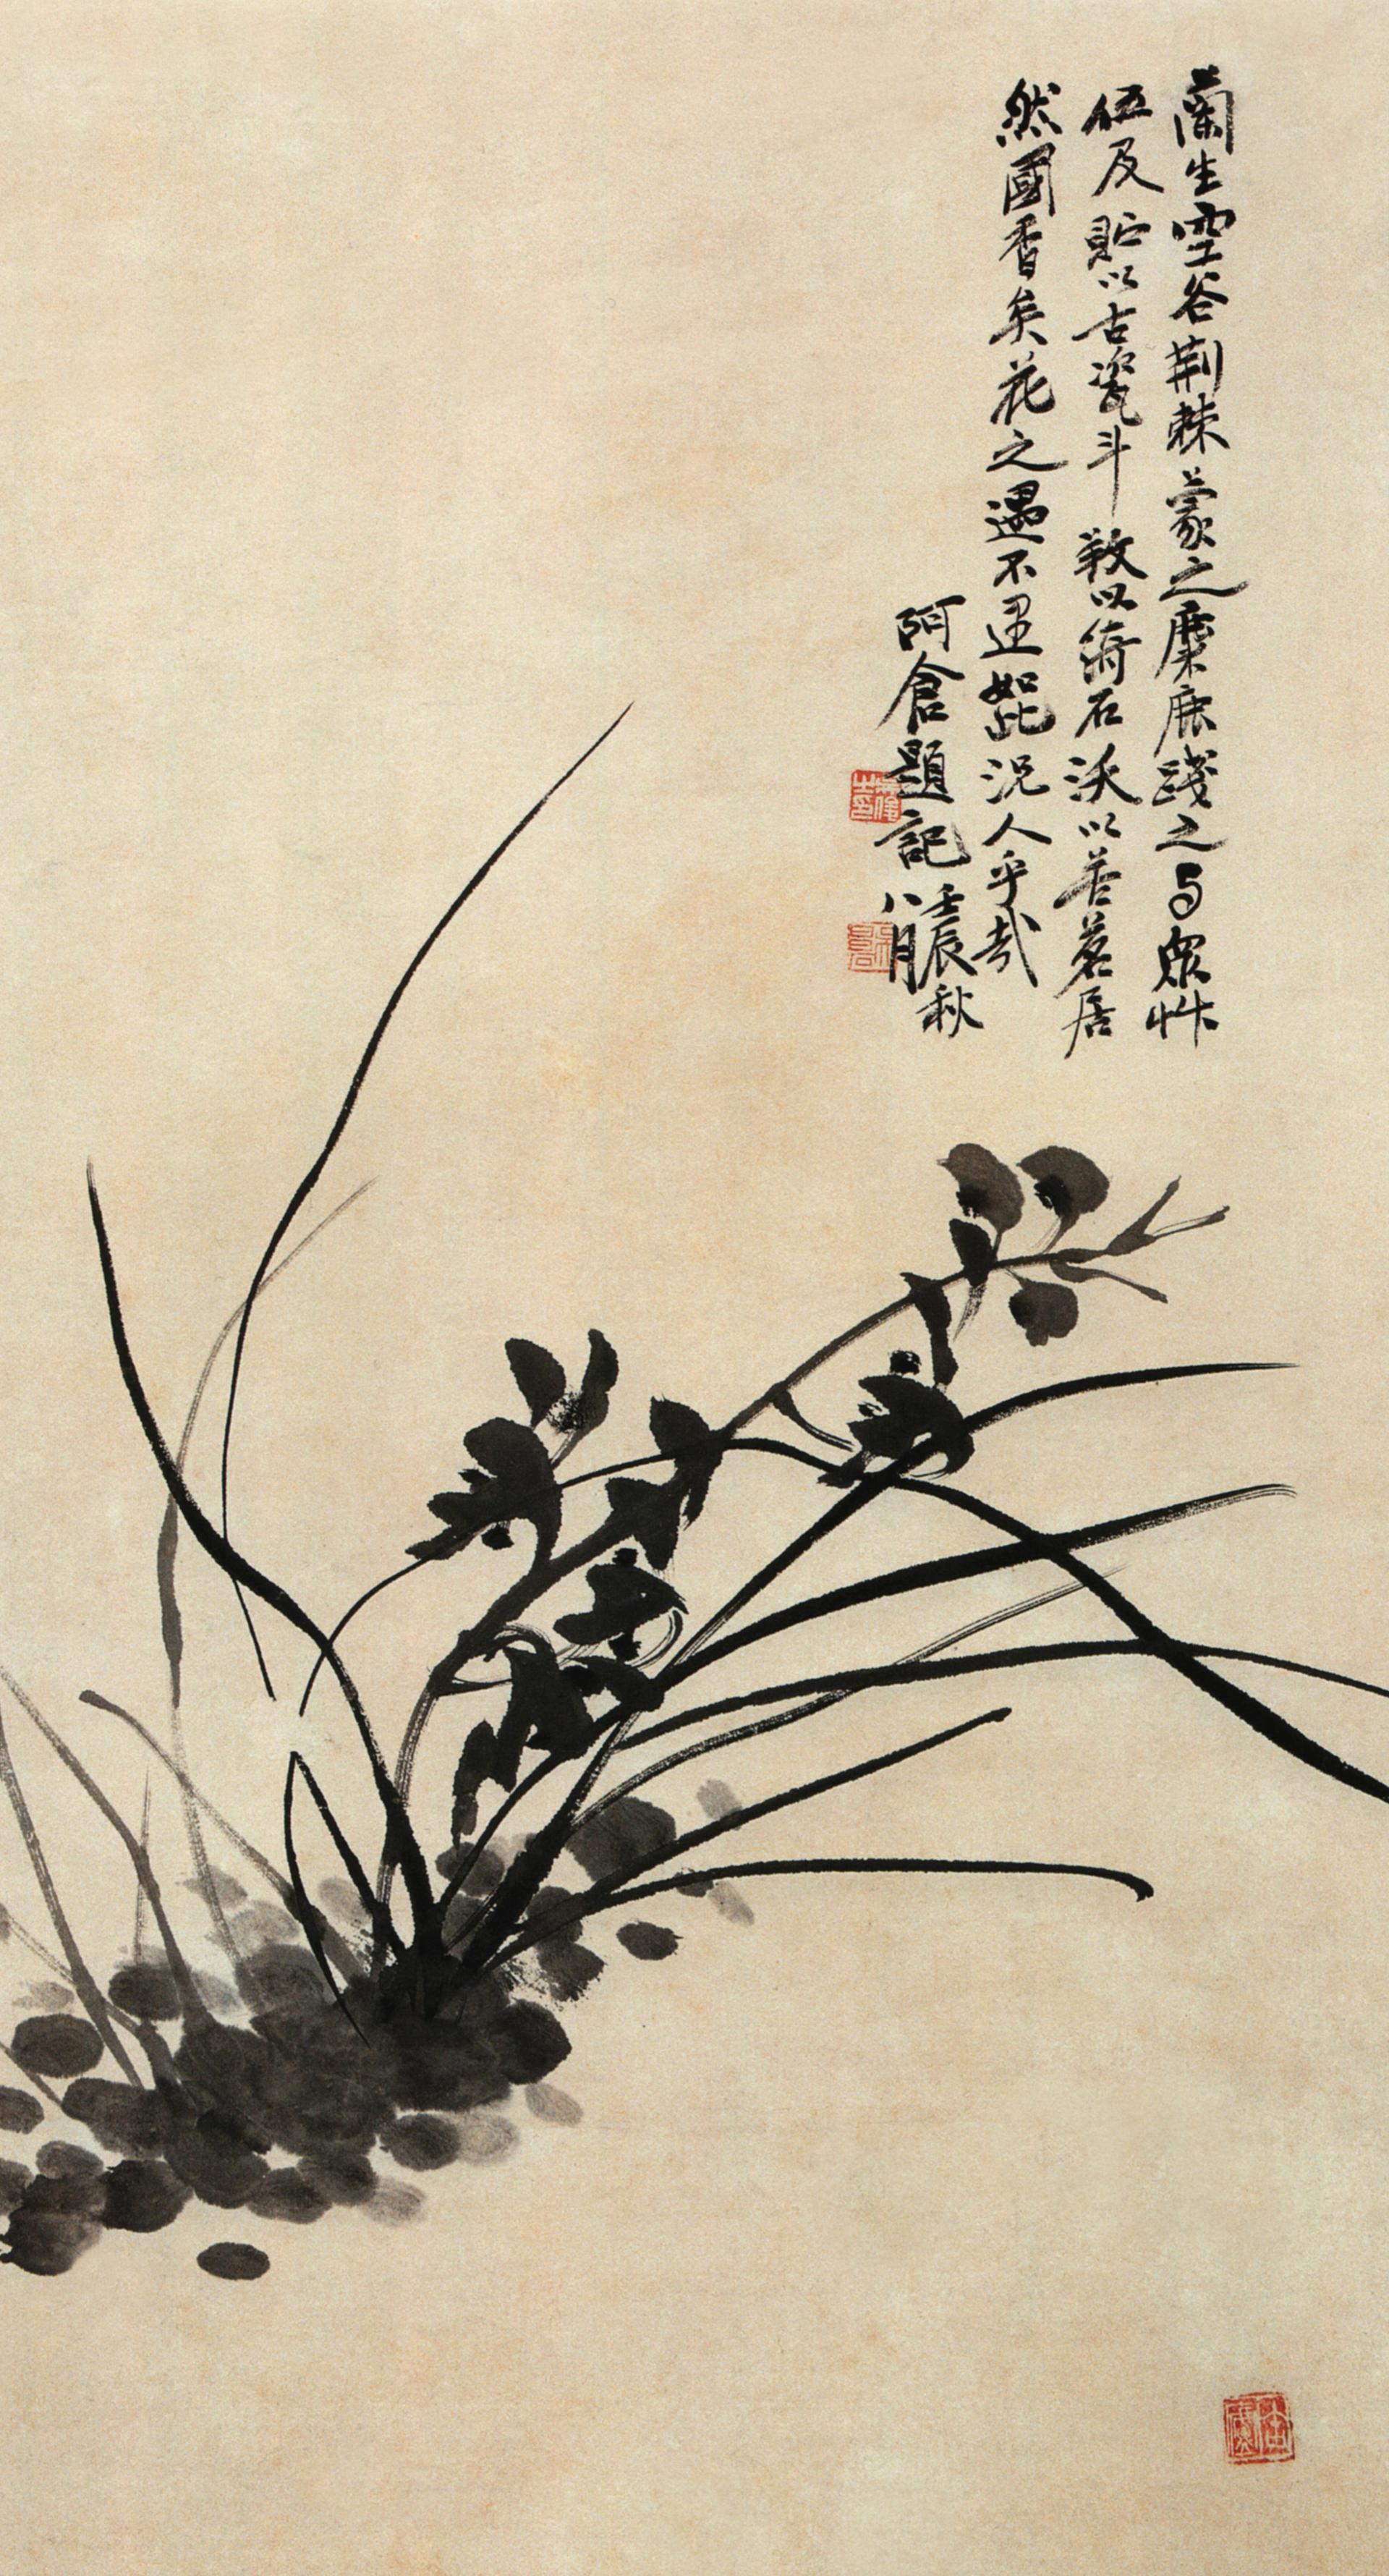 蘭生空谷荆棘蒙之麋鹿踐之与衆艸
伍及貯以古瓷斗敉以綺石沃以苦茗居
然國香矣花之遇不遇如此況人乎哉
阿倉題記壬辰秋
八月